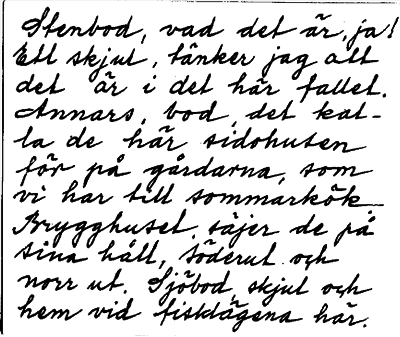 Stenbod, vad det är, ja!
Ett skjul, tänker jag att
det är i det här fallet.
Annars, bod, det kal-
la de här sidohusen
för på gårdarna, som
vi har till sommarkök
Brygghuset, säjer de på
sina håll, söderut och
norr ut. Sjöbod, skjul och
hem vid fisklägena här.